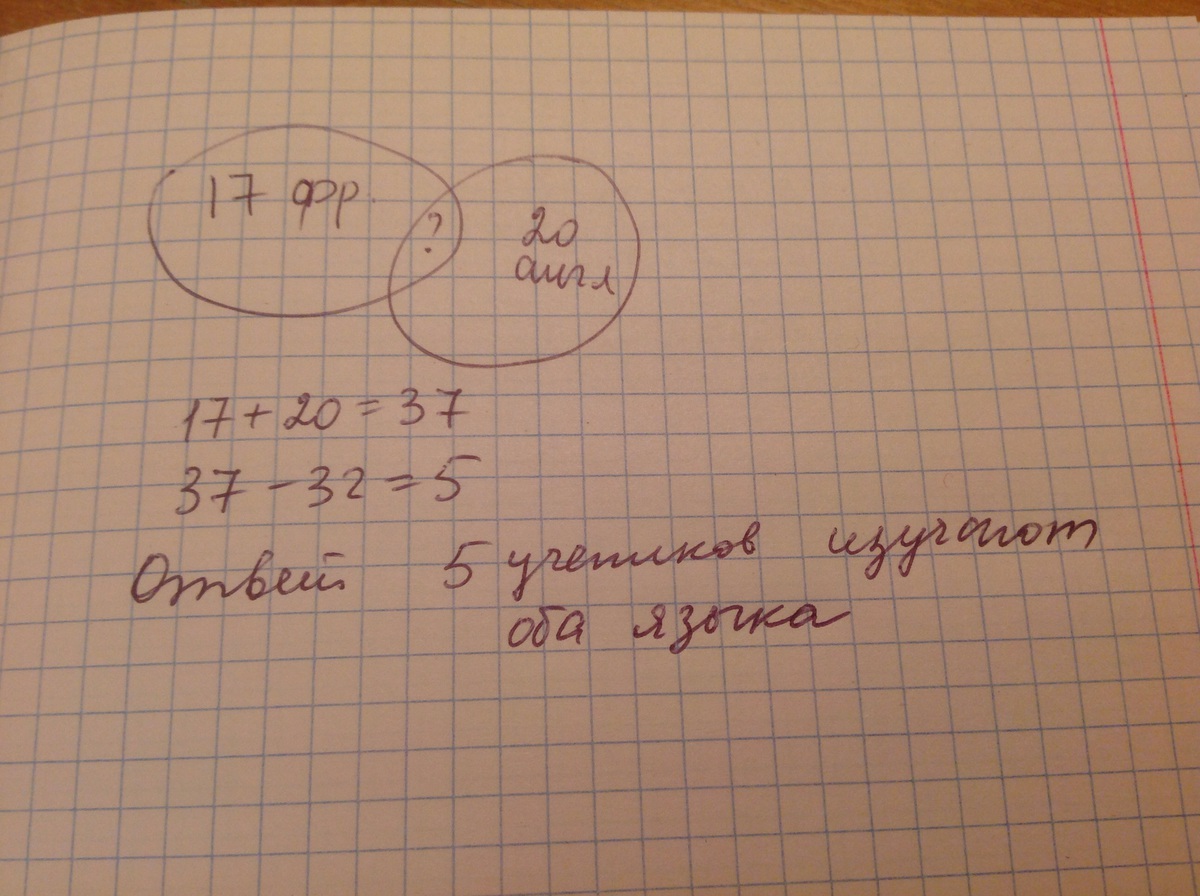 17 фр.
?
20
англ
17 + 20 = 37
37 - 32 = 5
Ответ 5 учеников изучают
оба языка